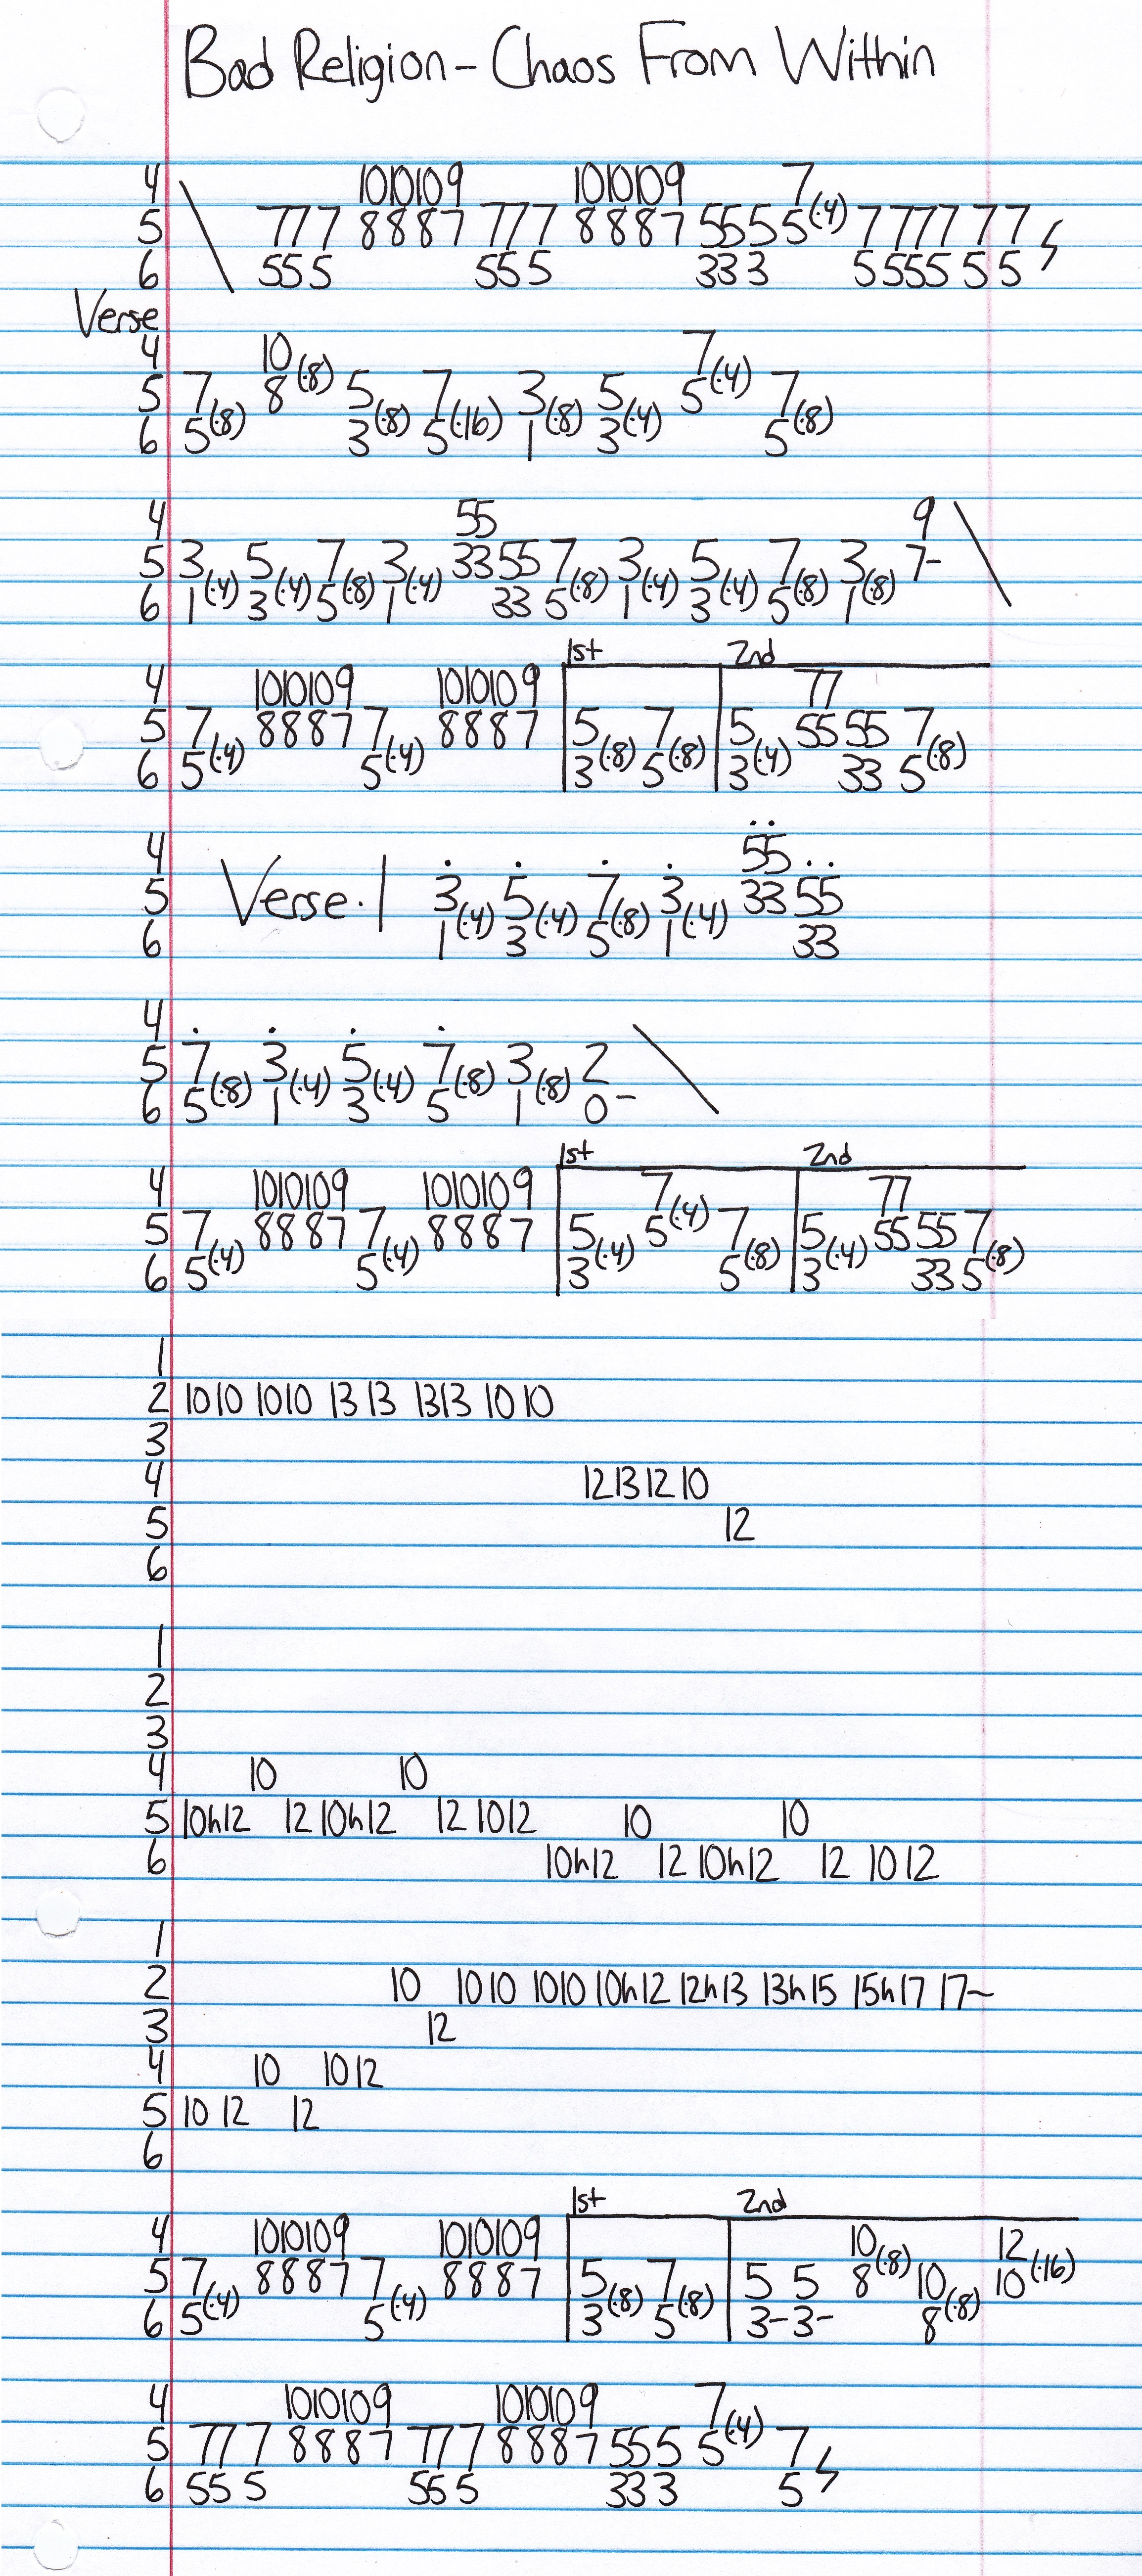 Bad Religion - Chaos From Within
4 \ 10 10 10 9 10 10 10 9 7
5 7 7 7 8 8 8 7 7 7 7 8 8 8 7 5 5 5 5(·4) 7 7 7 7 7 7
6 5 5 5 5 5 5 3 3 3 5 5 5 5 5 5
Verse
4 10 7
5 7 8(·8) 5 7 3 5 5(·4) 7
6 5(·8) 3(·8) 5(·16) 1(·8) 3(·4) 5(·8)
4 5 5 9 \
5 3 5 7 3 3 3 5 5 7 3 5 7 3 7-
6 1(·4) 3(·4) 5(·8) 1(·4) 3 3 5(·8) 1(·4) 3(·4) 5(·8) 1(·8)
1st 2nd
4 10 10 10 9 10 10 10 9 7 7
5 7 8 8 8 7 7 8 8 8 7 5 7 5 5 5 5 5 7
6 5(·4) 5(·4) 3(·8) 5(·8) 3(·4) 3 3 5(·8)
4 5 5
5 Verse · | 3 5 7 3 3 3 5 5
6 1(·4) 3(·4) 5(·8) 1(·4) 3 3
4 \
5 7 3 5 7 3 2
6 5(·8) 1(·4) 3(·4) 5(·8) 1(·8) 0-
1st 2nd
4 10 10 10 9 10 10 10 9 7 7 7
5 7 8 8 8 7 7 8 8 8 7 5 5(·4) 7 5 5 5 5 5 7
6 5(·4) 5(·4) 3(·4) 5(·8) 3(·4) 3 3 5(·8)
1
2 10 10 10 10 13 13 13 13 10 10
3
4 12 13 12 10
5 12
6
1
2
3
4 10 10
5 10h12 12 10h12 12 10 12 10 10
6 10h12 12 10h12 12 10 12
1
2 10 10 10 10 10 10h12 12h13 13h15 15h17 17~
3 12
4 10 10 12
5 10 12 12
6
1st 2nd
4 10 10 10 9 10 10 10 9 10 12
5 7 8 8 8 7 7 8 8 8 7 5 7 5 5 8(·8) 10 10(·16)
6 5(·4) 5(·4) 3(·8) 5(·8) 3- 3- 8(·8)
4 10 10 10 9 10 10 10 9 7
5 7 7 7 8 8 8 7 7 7 7 8 8 8 7 5 5 5 5(·4) 7
6 5 5 5 5 5 5 3 3 3 5